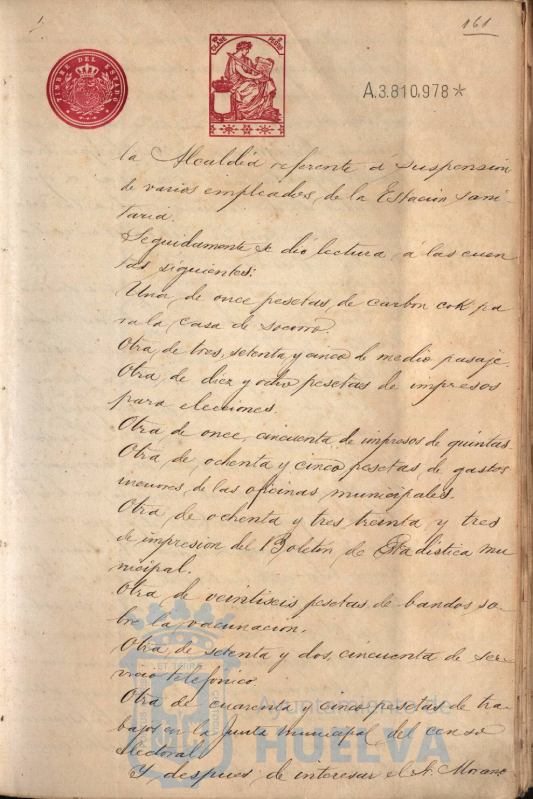 161
TIMBRE DEL ESTADO
A.3.810,978*
la Alcaldía referente a suspensión
de varios empleados, de la Estación sani-
taria.
Seguidamente se dió lectura, á las cuen
tas siguientes:
Una, de once pesetas, de carbon cok pa
ra la casa de socorro.
Otra, de tres, setenta y cinco de medio pasaje.
Otra, de diez y ocho pesetas de impresos
para elecciones.
Otra de once, cincuenta de impresos de quintas.
Otra, de ochenta y cinco pesetas, de gastos
menores, de las oficinas municipales.
Otra, de ochenta y tres, treinta y tres
de impresion del Boletín de Estadistica mu
nicipal.
Otra de veintiseis pesetas de bandos, so-
bre la vacunacion.
Otra, de setenta y dos, cincuenta de ser-
vicio telefonico
Otra de cuarenta y cinco pesetas de tra-
bajos en la Junta municipal del censo
electoral
Y, despues, de interesar el Sr. Morano
Ayuntamiento de
HUELVA